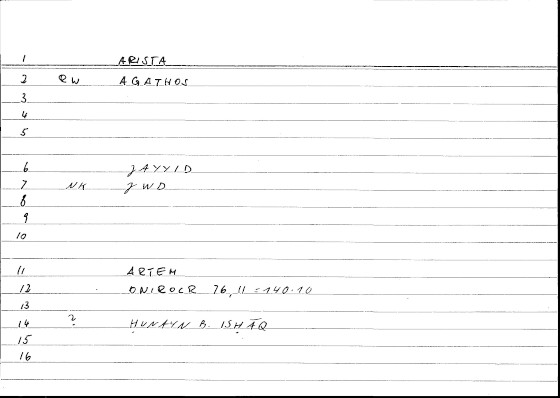 1 ARISTA
2 RW AGATHOS
3
4
5
6 ǧAYYID
7 NK ǧWD
8
9
10
11 ARTEM
12 ONIROCR 76,11 = 140.10
13
14 ? ḤUNAYN B. ISḤĀQ
15
16